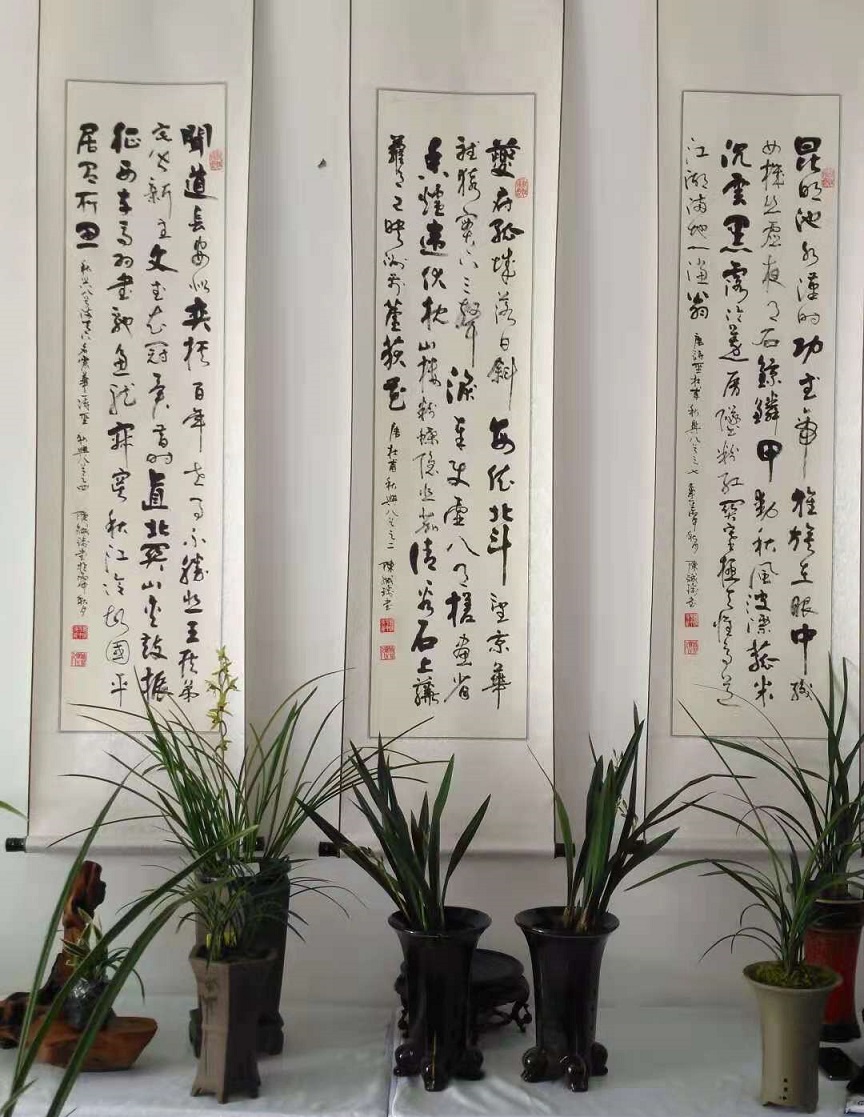 昆明池水漢時功武帝旌旗在眼中織
女機丝虛夜月石鯨鱗甲動秋風波漂菰米
沉雲黑露冷蓮房墜粉紅關塞極天惟鳥道
江湖滿地一漁翁 唐詩聖杜甫秋興八首之七 陳 書
夔府孤城落日斜每依北斗望京華
聽猿實下三聲淚奉使虛八月槎畫省
香爐違伏枕山樓粉堞隱悲笳請看石上藤
蘿月已映洲前蘆荻花 唐杜甫秋興八首之二 陳 書
聞道長安似弈棋百年世事不勝悲王侯第
宅皆新主文武衣冠異昔時直北關山金鼓振
征西車馬羽書馳魚龍寂寞秋江冷故國平
居有所思 秋興八首之四 陳 書於